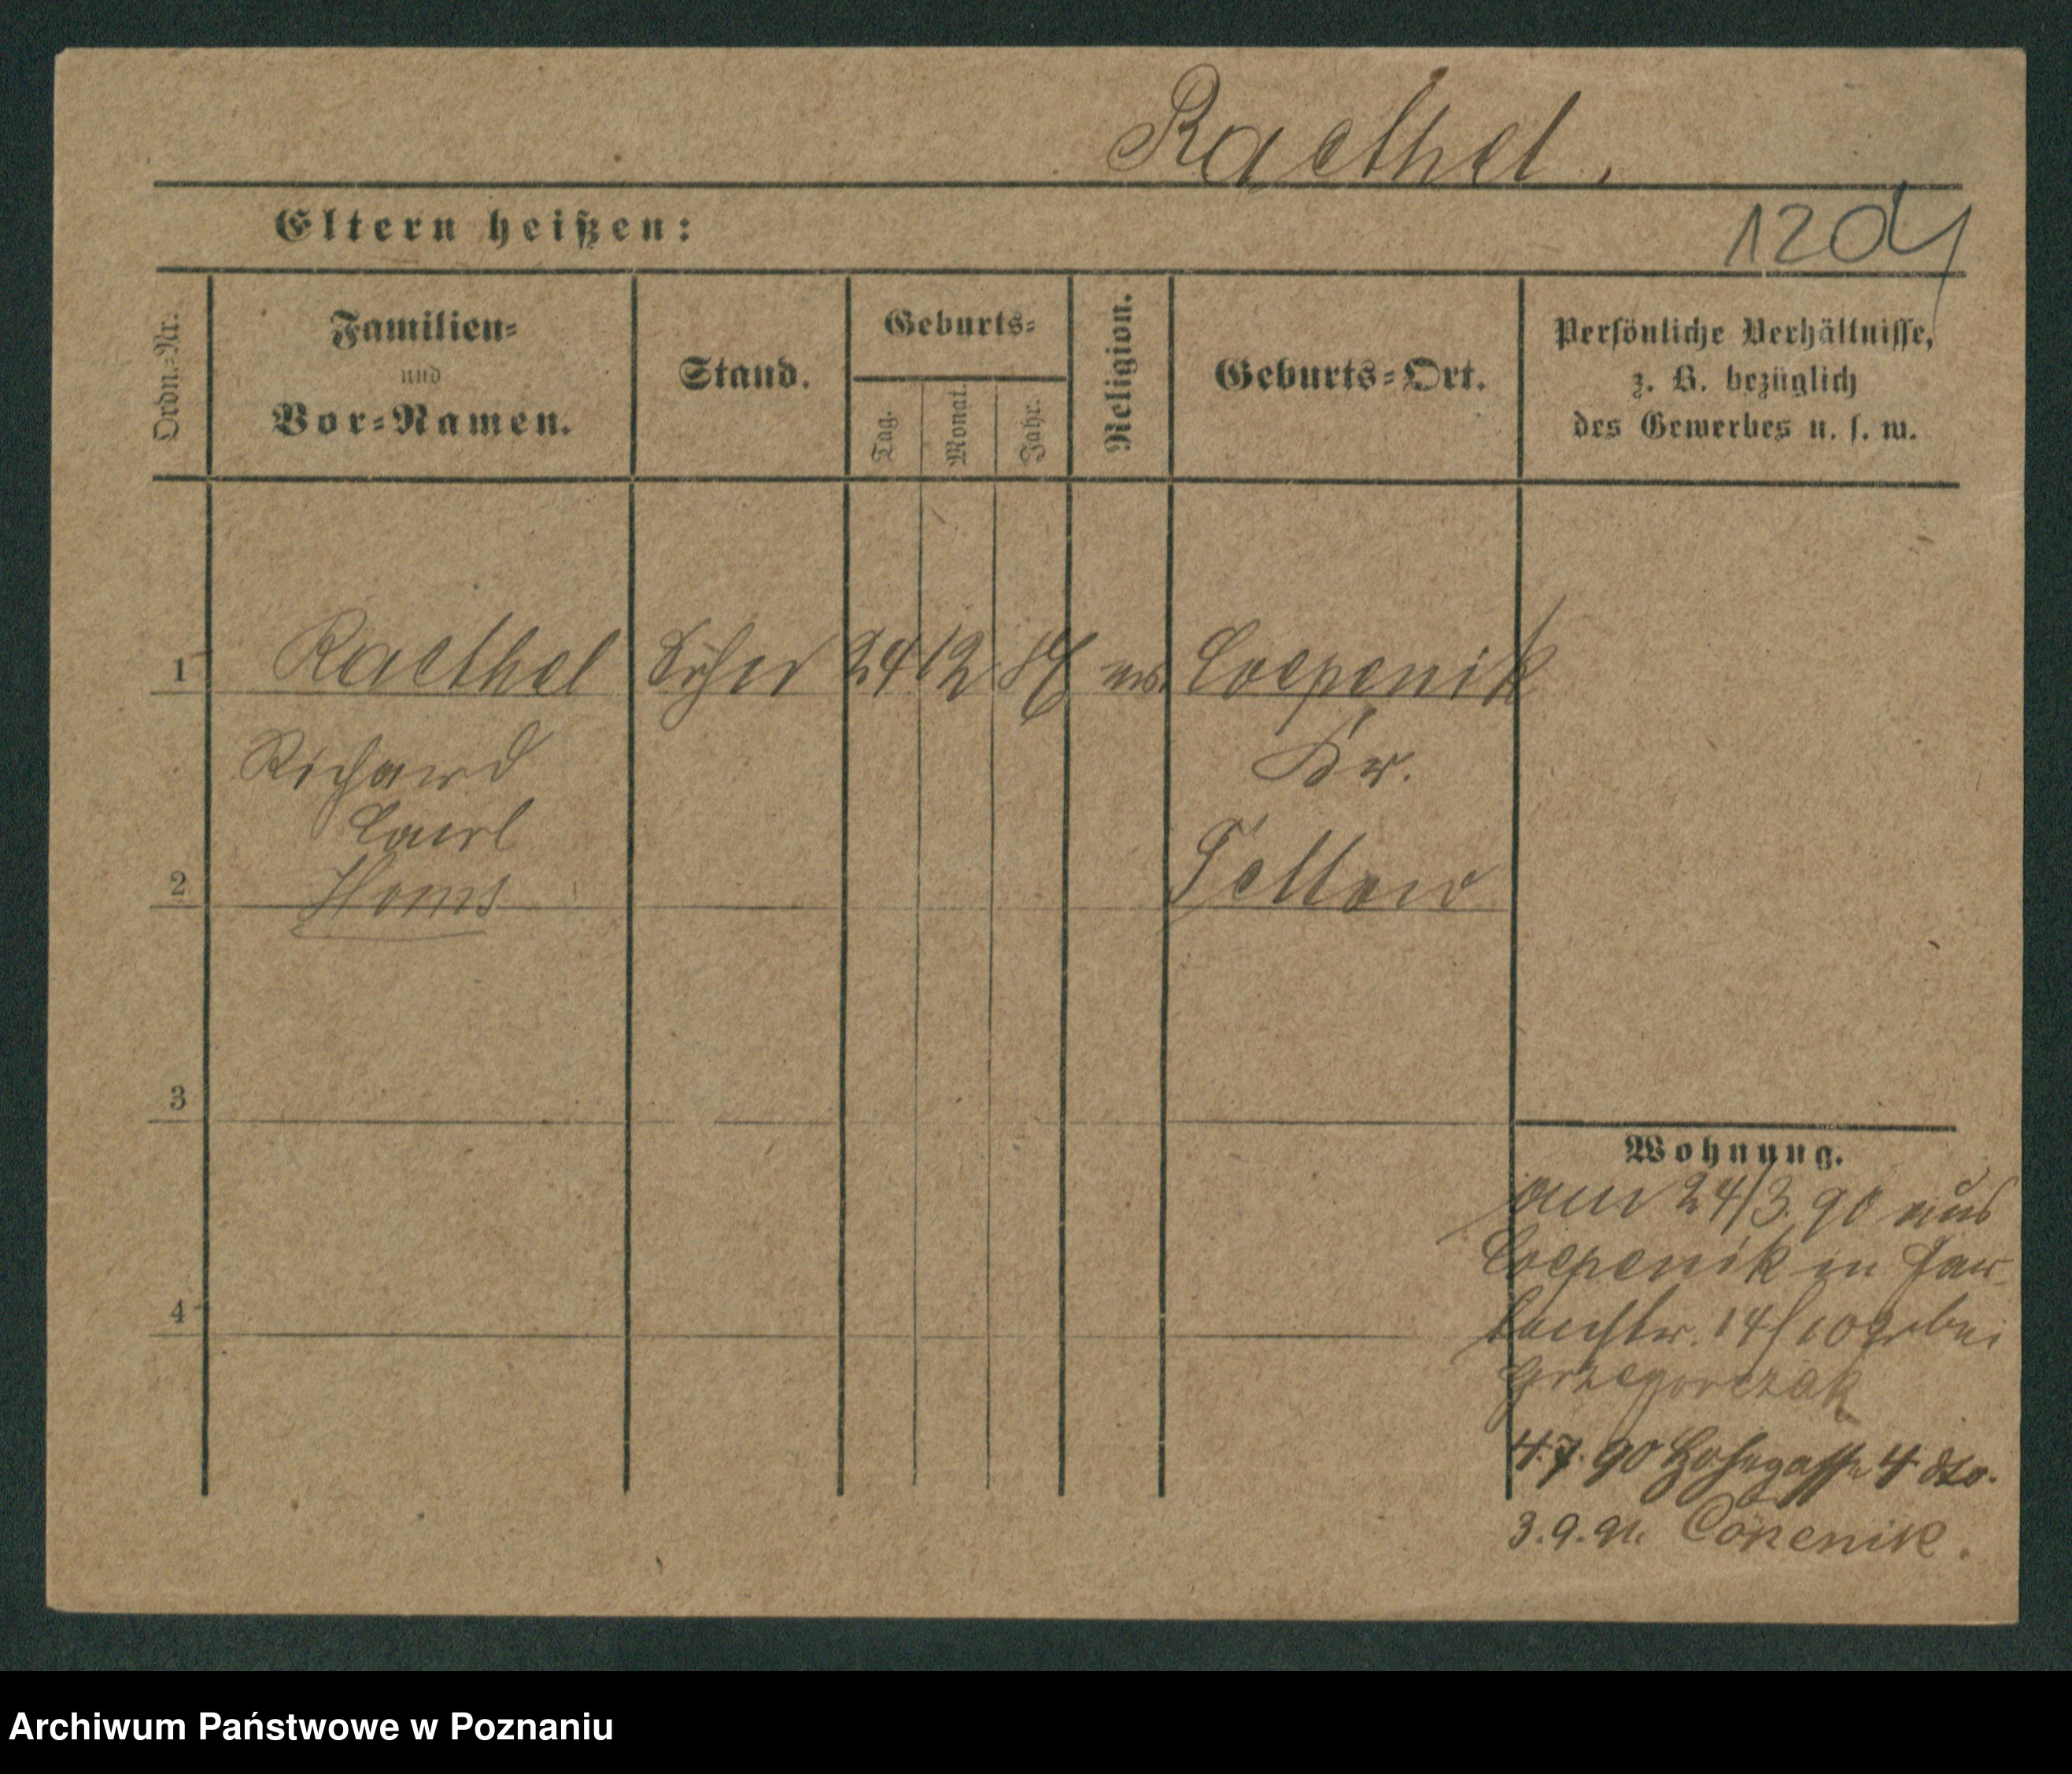 Raethel.
Eltern heißen:
1204
Ordn.=Nr.
Familien=
und
Vor=Namen.
Stand.
Geburts=
Tag.
Monat.
Jahr.
Religion.
Geburts=Ort.
Persönliche Verhältnisse,
z. B. bezüglich
des Gewerbes u. s. w.
1 Raethel 24 12 Coepenik
Richard Kr.
Carl
2 Hans Teltow
3
4
Wohnung.
24/3. 90 aus
Coepenik in
14/10 bei
Grzegorczak
4.7.90 4 dto.
3.9.91. Cöpenik.
Archiwum Państwowe w Poznaniu